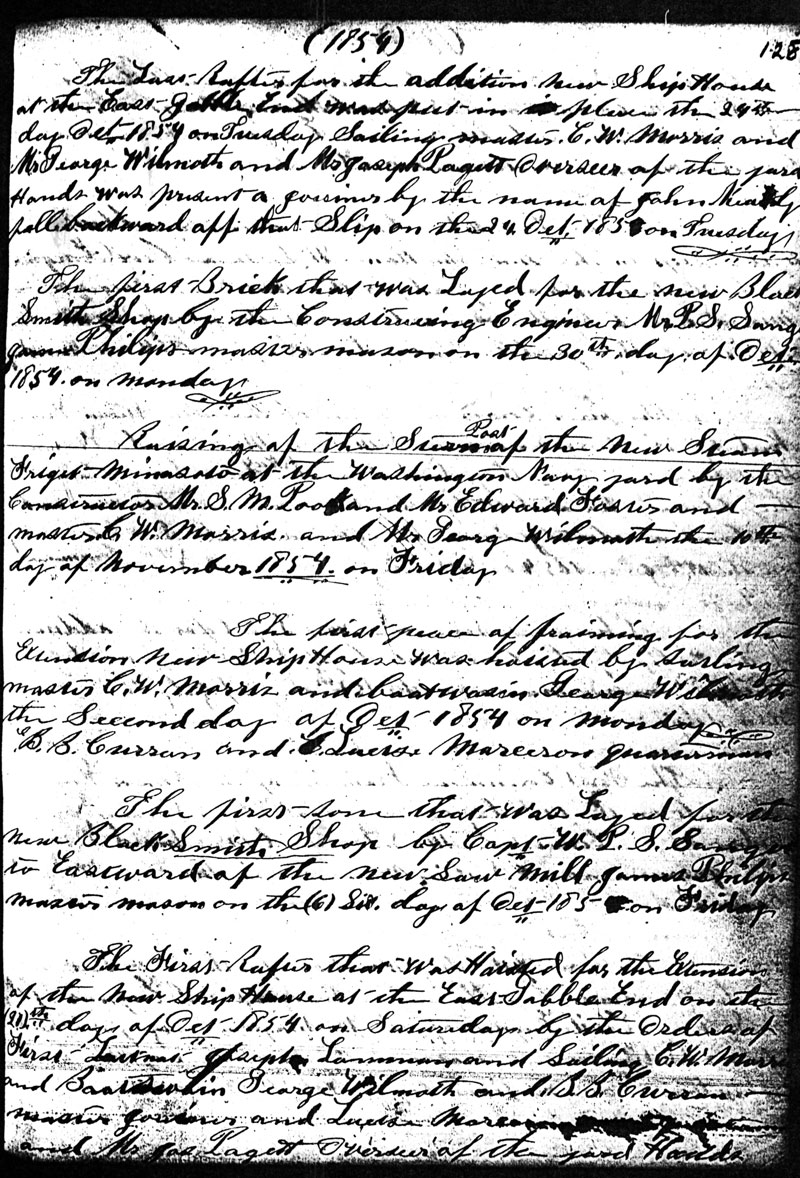 (1854)
128
The Last Rafter for the addition new Ship House
at the East Gabble End was put in place the 24th
day Oct 1854 on Tuesday Sailing master C. W. Morris and
Mr George Wilmoth and Mr Joseph Pagett Overseer of the yard
Hands was present a goiner by the name of John
fell backward off that Slip on the 24 Oct 185 on Tuesday
The first Brick that was Layed for the new Black
Smith Shop by the Engineer Mr P. S. Sang
James Philips master mason on the 30th day of Oct
1854. on monday
Raising of the Stern Post of the New Steam
Friget Minasoto at the Washington Navy yard by the
Constructor Mr S. M. Pook and Mr Edward Foster and
master C. W. Morris and Mr George Wilmoth the 10th
day of November 1854. on Friday
The first peace of fraiming for the
Extension New Ship House was hoisted by
master C. W. Morris and boatwasin George Wilmoth
the Second day of Oct 1854 on monday
B. B. Curran and Marceron
The first stone that was Layed for the
new Black Smith Shop by Capt W. P. S. Sanger
to Eastward of the new Saw Mill James Philips
master mason on the (6) Six. day of Oct 185 on Friday
The First Rafter that Was Haisted for the Extension
of the New Ship House at the East Gabble End on the
day of Oct 1854 on Saturday by the Orders of
First Joseph Lanman and Sailing C. W. Morris
and Boatswain George Wilmoth and B. B. Curran
master goiner and
and Mr Jos Pagett Overseer of the yard Hands